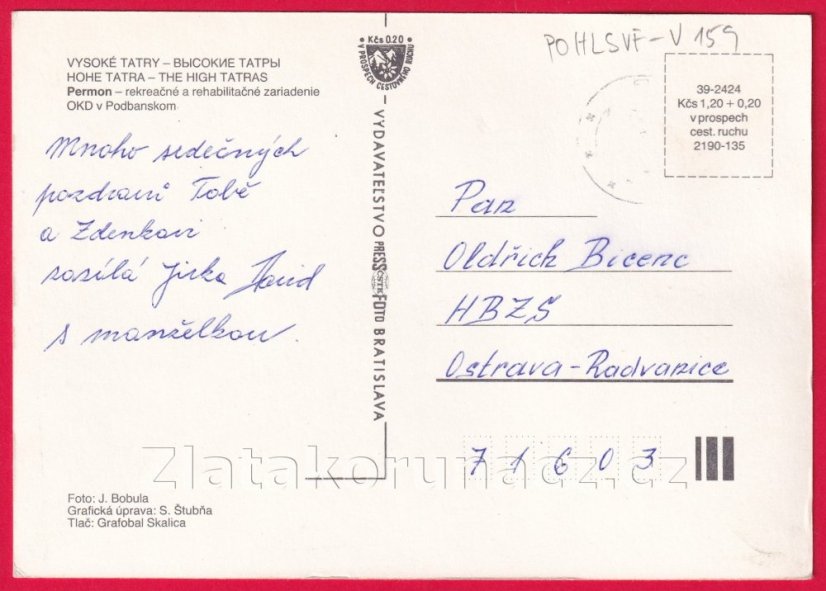 POHLSVF-V 159
Kčs 0.20
V PROSPECH CESTOVNÉHO RUCHU
VYSOKÉ TATRY – ВЫСОКИЕ ТАТРЫ
HOHE TATRA – THE HIGH TATRAS
Permon – rekreačné a rehabilitačné zariadenie
OKD v Podbanskom
39-2424
Kčs 1,20 + 0,20
v prospech
cest. ruchu
2190-135
Mnoho srdečných
pozdravů Tobě
a Zdenkovi
zasílá Jirka David
s manželkou.
VYDAVATEĽSTVO PRESSFOTO BRATISLAVA
ČSTK
Pan
Oldřich Bicenc
HBZS
Ostrava-Radvanice
71603
Zlatakorunacz.cz
Foto: J. Bobula
Grafická úprava: S. Štubňa
Tlač: Grafobal Skalica